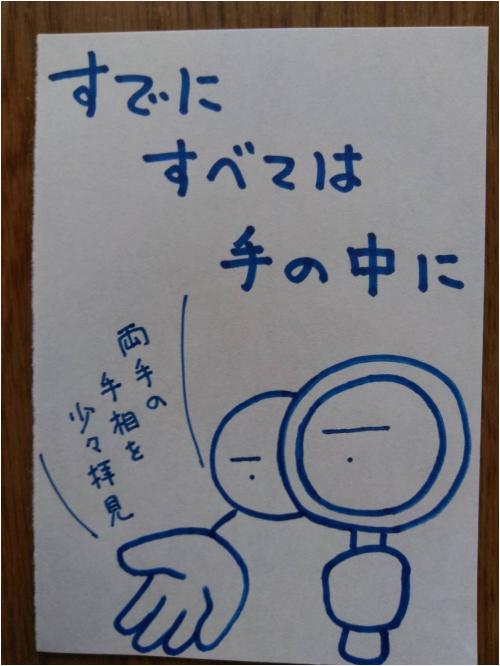 すでに
すべては
手の中に
両手の
手相を
少々拝見